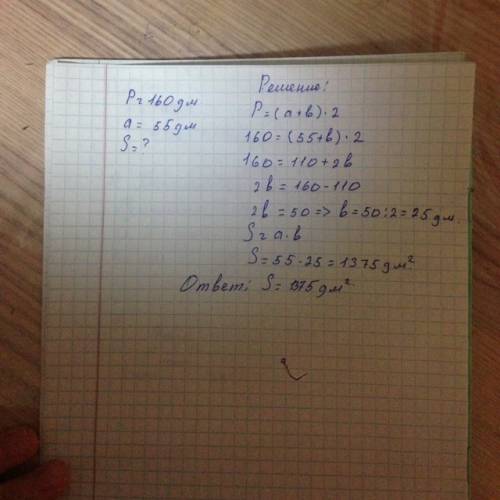 P = 160 дм
a = 55 дм
S = ?
Решение:
P = (a+b)·2
160 = (55+b)·2
160 = 110 + 2b
2b = 160 - 110
2b = 50 => b = 50:2 = 25 дм.
S = a·b
S = 55·25 = 1375 дм²
Ответ: S = 1375 дм²